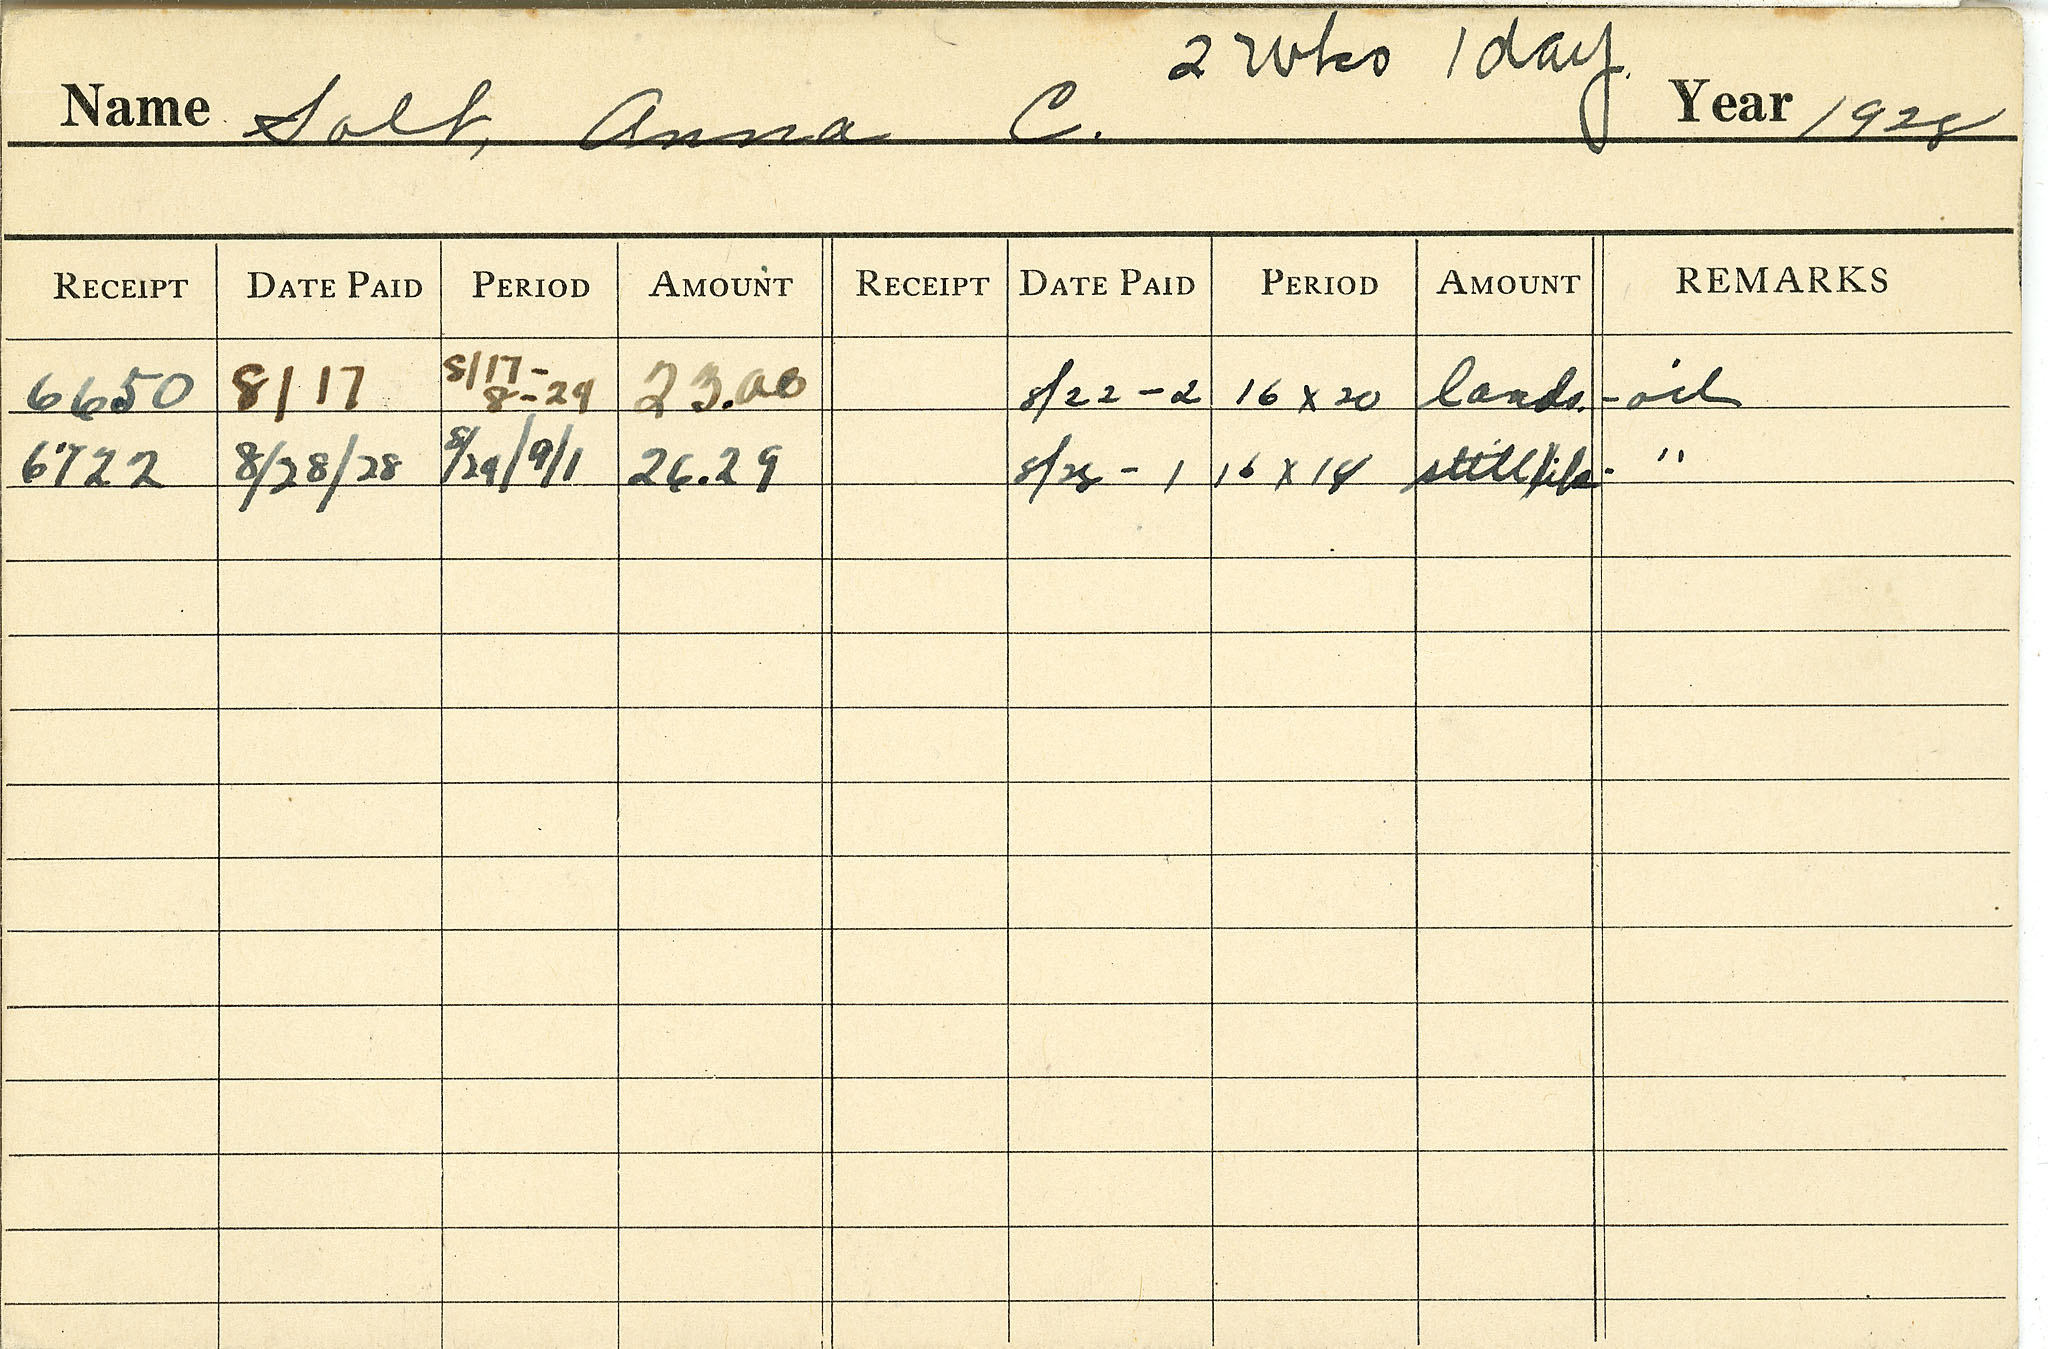 2 wks 1 day.
Name Solt, Anna C. Year 1928
RECEIPT DATE PAID PERIOD AMOUNT RECEIPT DATE PAID PERIOD AMOUNT REMARKS
6650 8/17 8/17-8-29 23.00 8/22-2 16 x 20 lands.-oil
6722 8/28/28 8/29/9/1 26.29 - 1 16 x still life - "